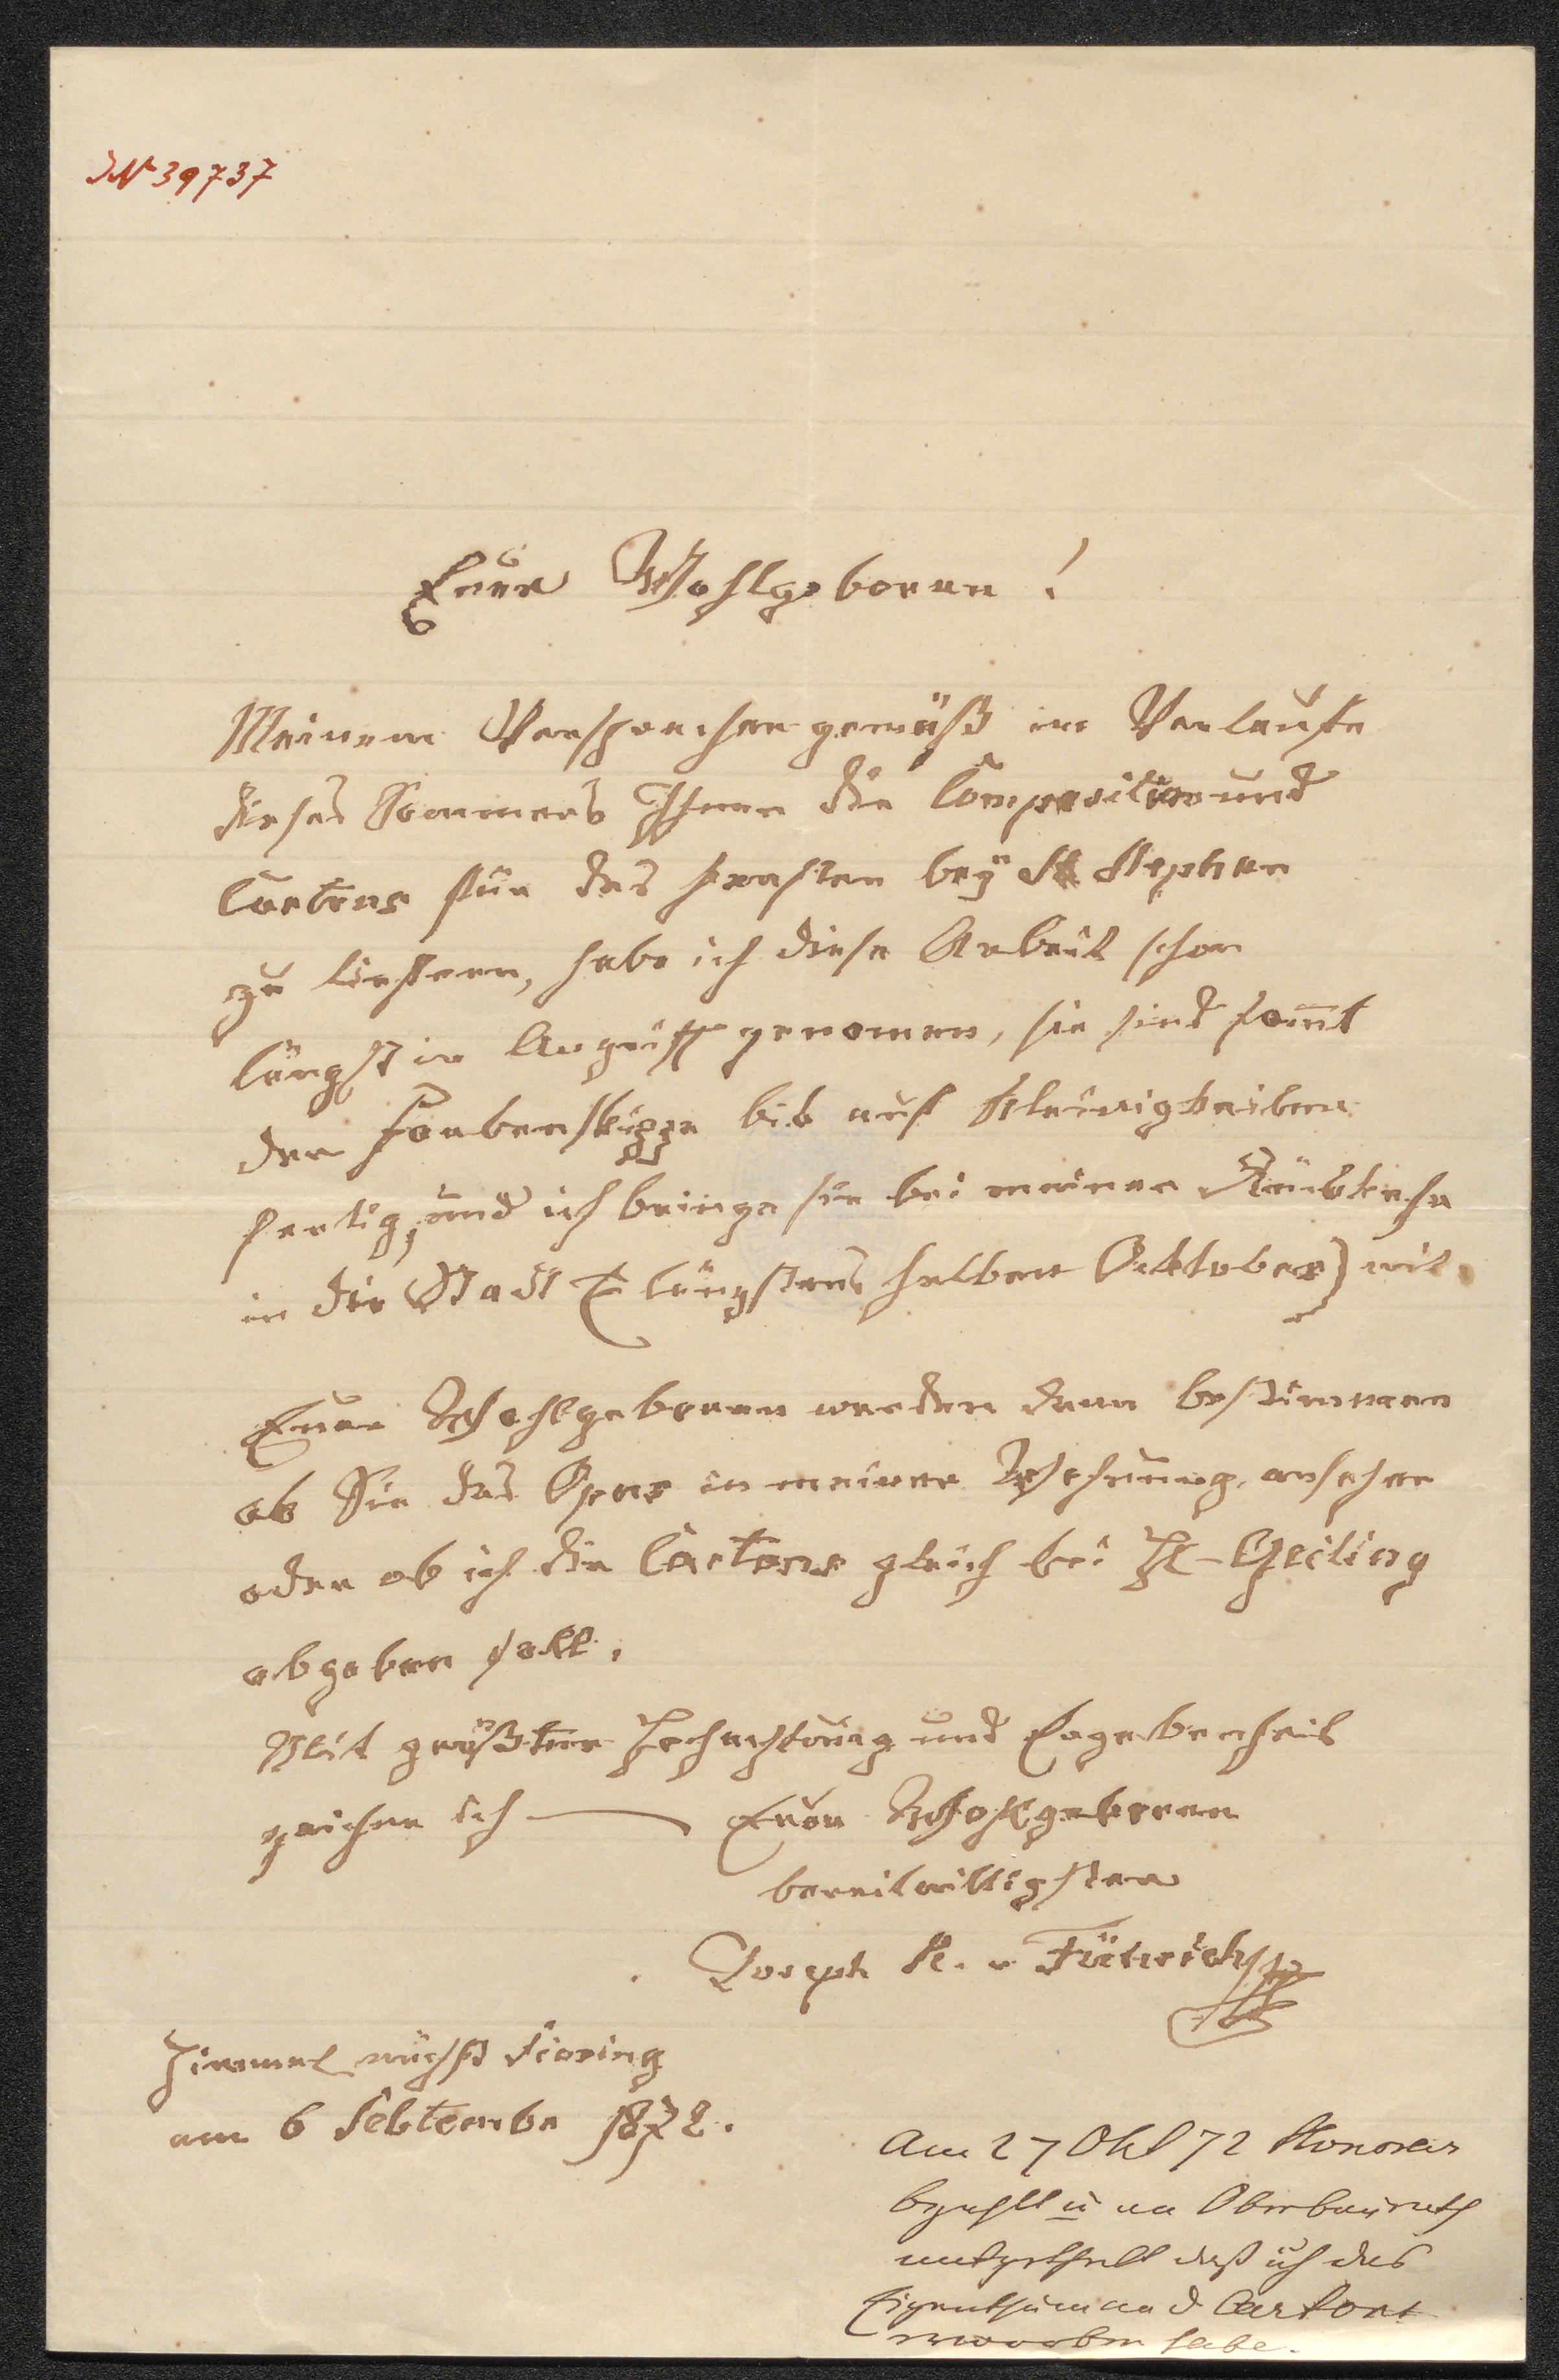 IN 39737
Euer Wohlgeboren!
Meinem Versprechen gemäß im Verlaufe
dieses Sommers Ihnen die Composition und
Cartons für das Fenster bey St Stephan
zu liefern, habe ich diese Arbeit schon
längst in Angriff genomen, sie sind samt
der Farbenskizze bis auf Kleinigkeiten
fertig, und ich bringe sie bei meiner Rückkehr
in die Stadt (längstens halben Oktober) mit.
Euer Wohlgeboren werden dann bestimmen
ob Sie das Opus in meiner Wohnung ansehen
oder ob ich die Cartons gleich bei H. Geiling
abgeben soll.
Mit größter Hochachtung und Ergebenheit
zeichne ich — Euer Wohlgeboren
bereitwilligster
Joseph R. v Führich
Himmel nächst Siering
am 6 Sebtembr 1872.
Am 27 Okt 72 Honorar
bezahlt u an Oberbaurath
mitgetheilt daß ich das
Eigenthum an d Cartons
erworben habe.